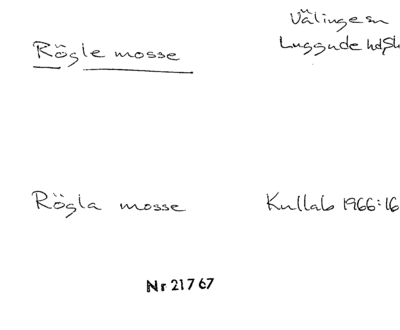 Välinge sn
Rögle mosse
Luggude hd, Sk
Rögla mosse
Kullab 1966:16
Nr 21767